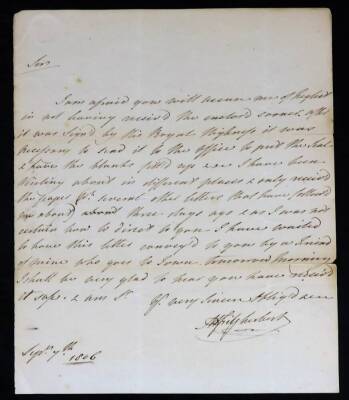 Sir
I am afraid you will accuse me of neglect
in not having receiv'd the enclos'd sooner, after
it was Sign'd by his Royal Highness it was
necessary to send it to the office to put the Seal
& have the blanks fill'd up & as I have been
Visiting about in different places & only receiv'd
the paper several other letters that have follow'd
me about about three days ago & as I was not
certain how to direct to you - I have waited
to have this letter convey'd to you by a friend
of mine who goes to Town tomorrow morning
I shall be very glad to hear you have receiv'd
it safe. & am Sr
Yr very Sincere & Oblig'd
MFitzherbert
Sepr 7th 1806